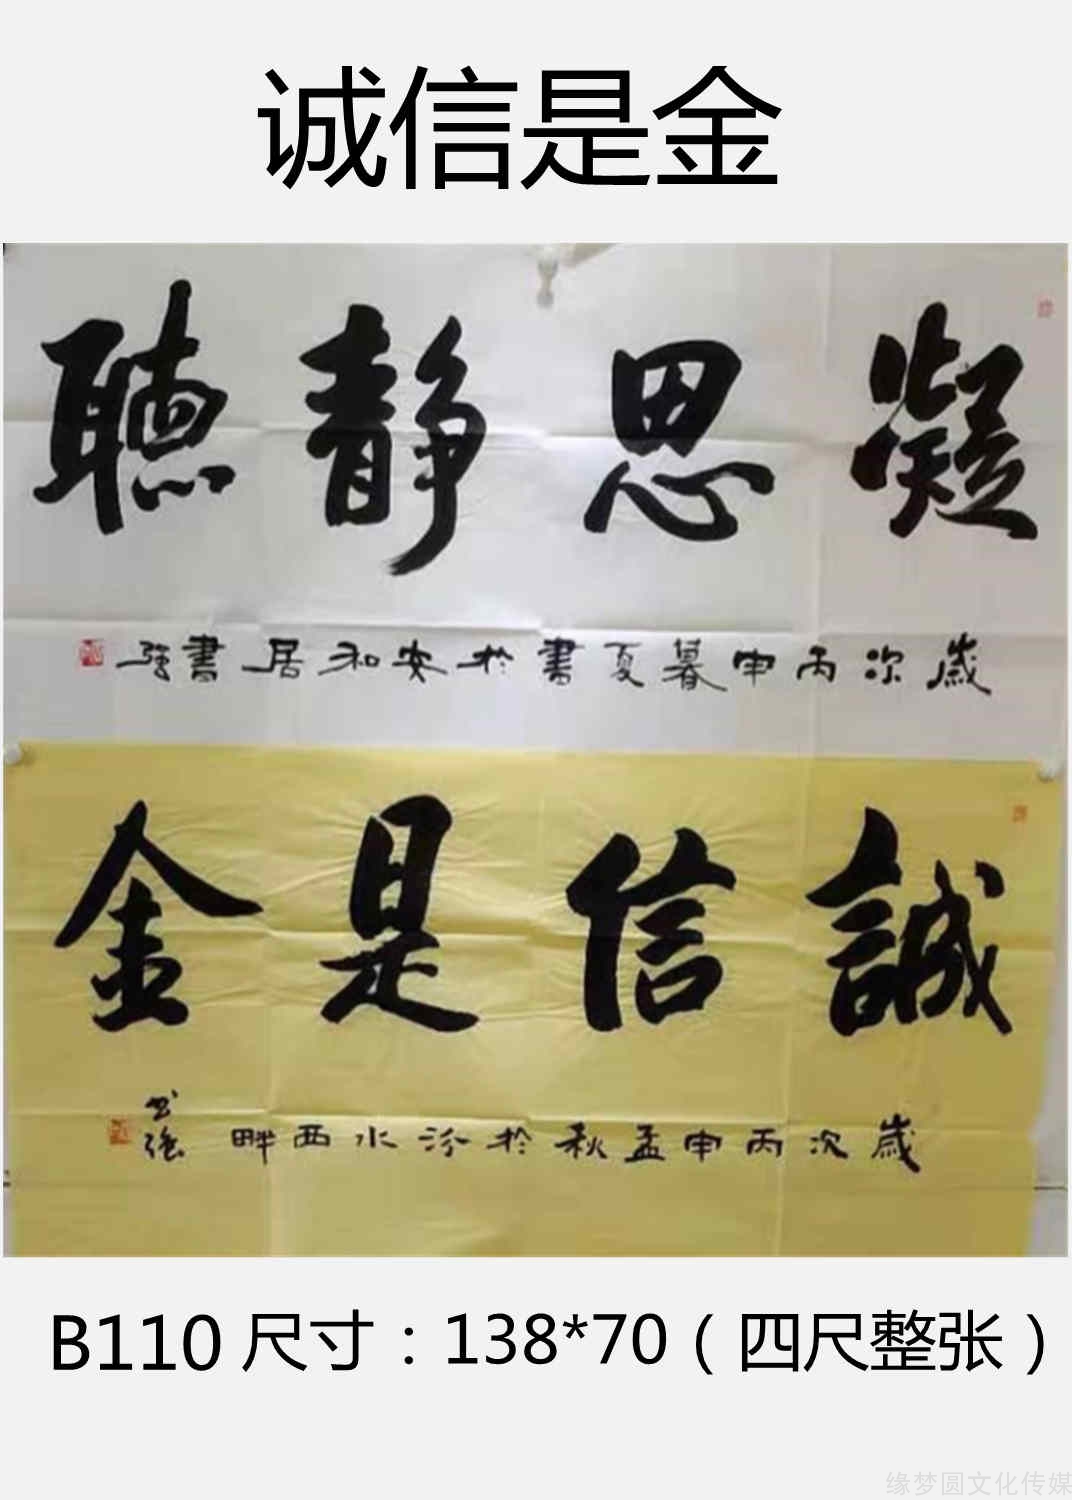 诚信是金
凝思静聽
歲次丙申暮夏書於安和居書強
誠信是金
歲次丙申孟秋於汾水西畔
書強
B110 尺寸：138*70（四尺整张）
缘梦圆文化传媒